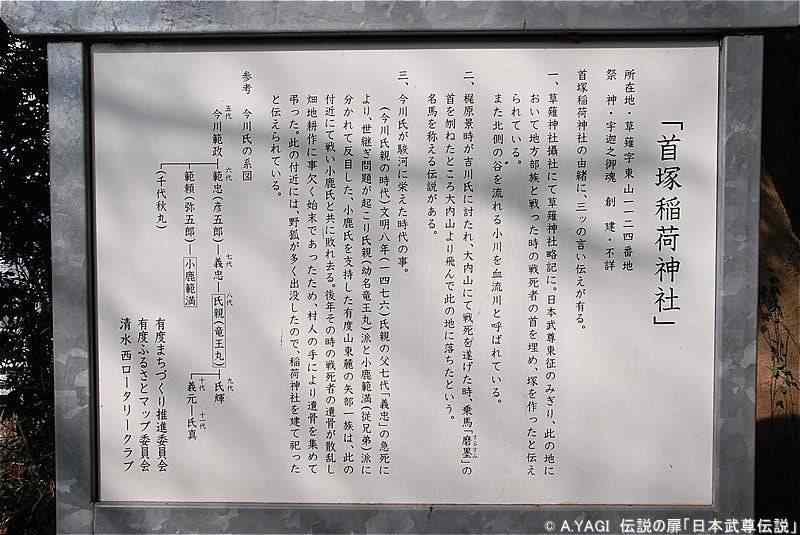 「首塚稲荷神社」
所在地・草薙字東山一一二四番地
祭　神・宇迦之御魂　創　建・不詳
首塚稲荷神社の由緒に、三ッの言い伝えが有る。
一、草薙神社攝社にて草薙神社略記に。日本武尊東征のみぎり、此の地に
おいて地方部族と戦った時の戦死者の首を埋め、塚を作ったと伝え
られている。
また北側の谷を流れる小川を血流川と呼ばれている。
二、梶原景時が吉川氏に討たれ、大内山にて戦死を遂げた時、乗馬「磨墨」の
首を刎ねたところ大内山より飛んで此の地に落ちたという。
名馬を称える伝説がある。
三、今川氏が駿河に栄えた時代の事。
（今川氏親の時代）文明八年（一四七六）氏親の父七代「義忠」の急死に
より、世継ぎ問題が起こり氏親（幼名竜王丸）派と小鹿範満（従兄弟）派に
分かれて反目した、小鹿氏を支持した有度山東麓の矢部一族は、此の
付近にて戦い小鹿氏と共に敗れ去る。後年その時の戦死者の遺骨が散乱し
畑地耕作に事欠く始末であったため、村人の手により遺骨を集めて
弔った。此の付近には、野狐が多く出没したので、稲荷神社を建て祀った
と伝えられている。
参考　今川氏の系図
五代　六代　七代　八代　九代
今川範政　範忠（彦五郎）　義忠　氏親（竜王丸）　氏輝
十代　十一代
義元　氏真
範頼（弥五郎）　小鹿範満
（千代秋丸）
有度まちづくり推進委員会
有度ふるさとマップ委員会
清水西ロータリークラブ
© A.YAGI　伝説の扉「日本武尊伝説」